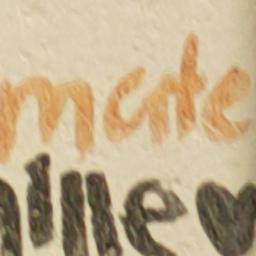 mate
ille♥